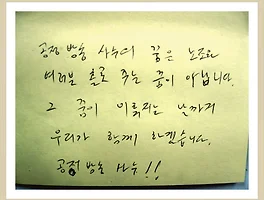 공정 방송 사수의 꿈은 노조원
여러분 홀로 꾸는 꿈이 아닙니다.
그 꿈이 이뤄지는 날까지
우리가 함께 하겠습니다.
공정 방송 사수!!